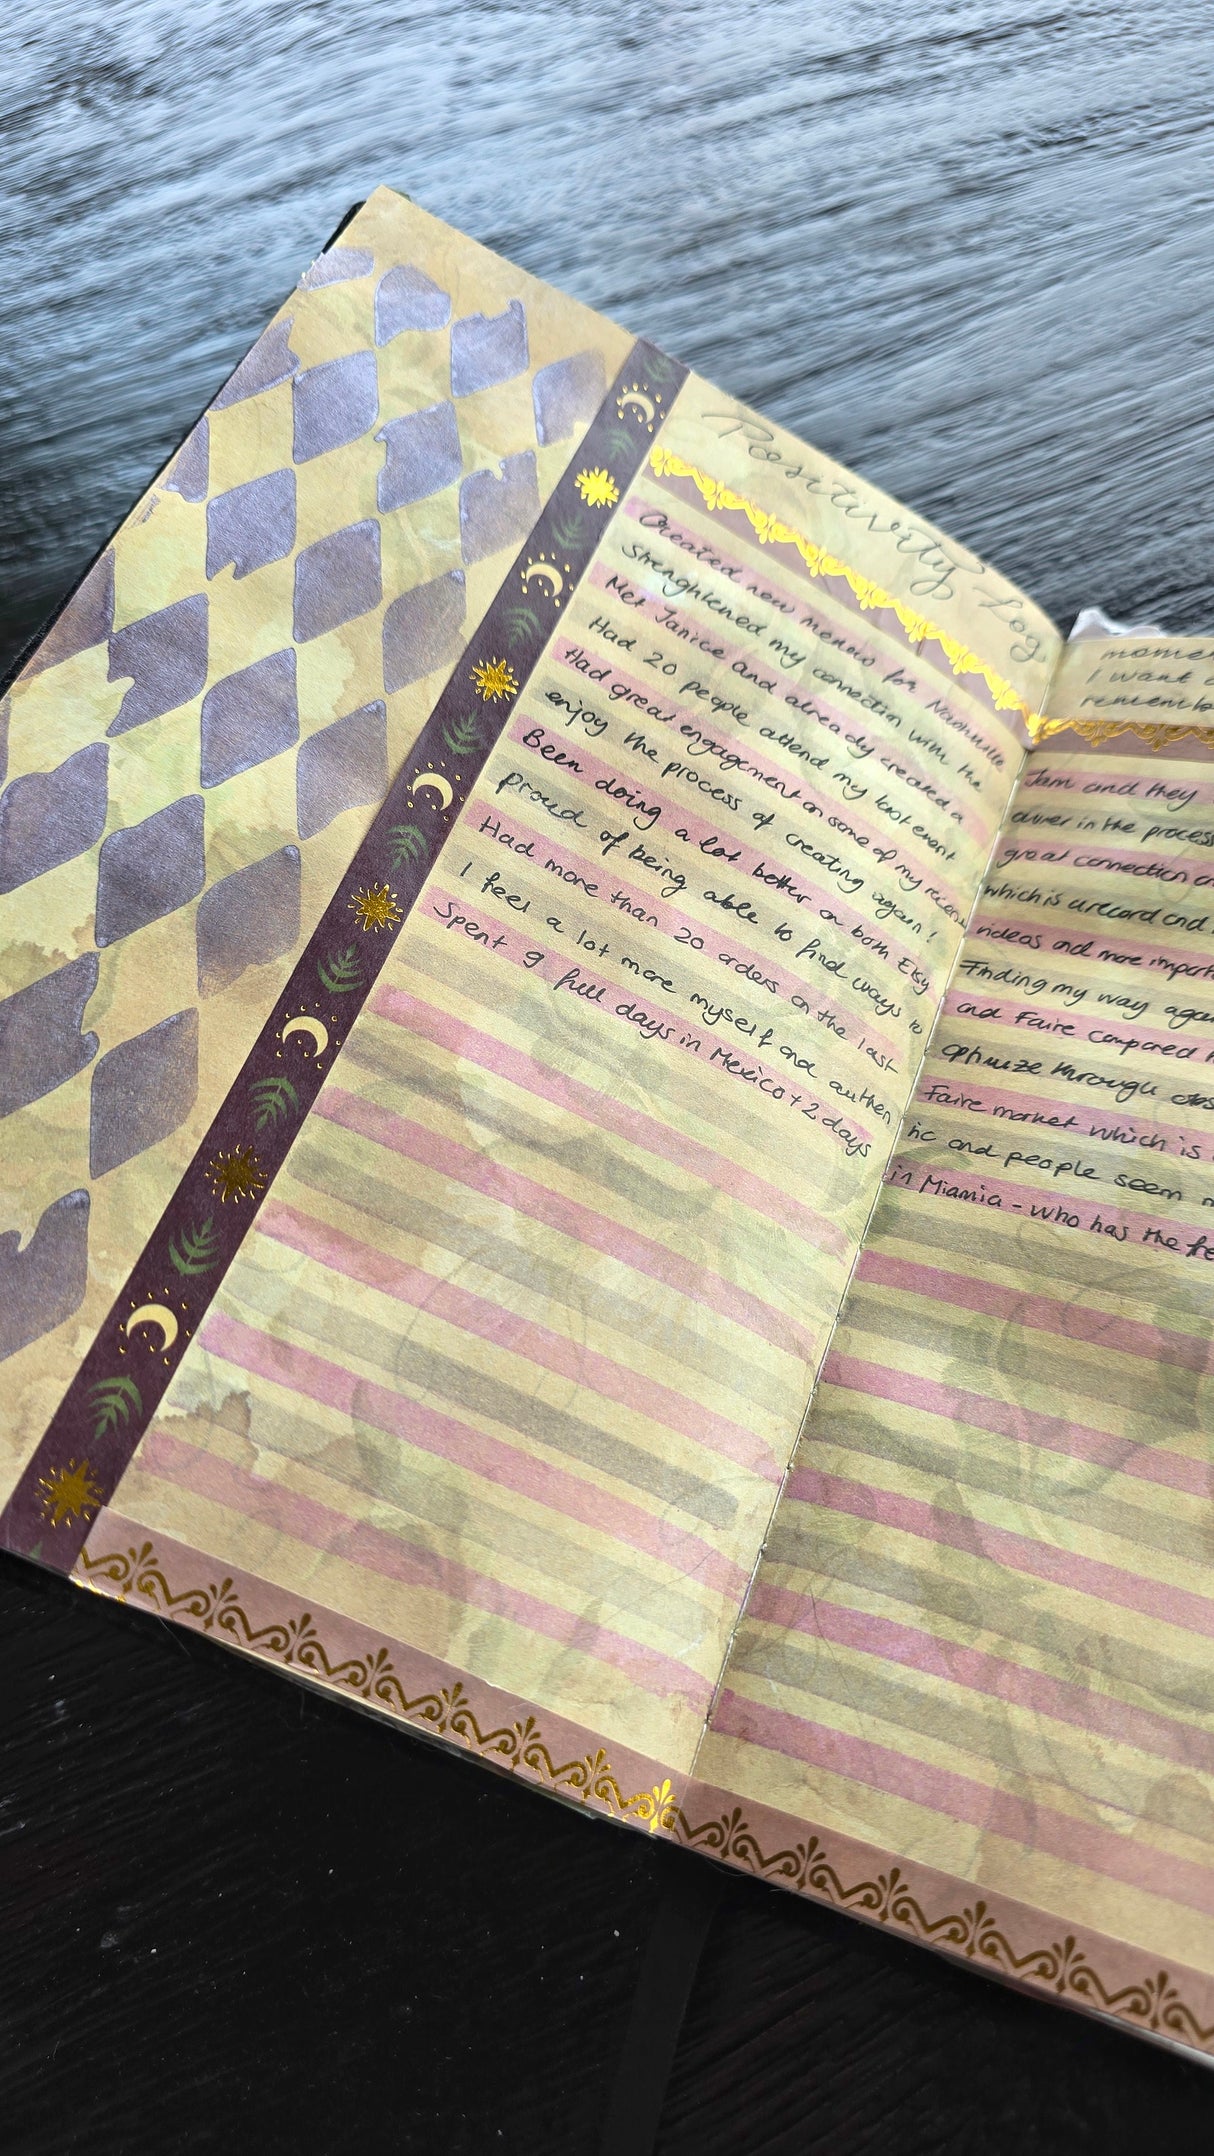 Positivity Log
Created new menus for Nashville
Strenghtened my connection with the
Met Janice and already created a
Had 20 people attend my last event
Had great engagement on some of my recent
enjoy the process of creating again!
Been doing a lot better on both Etsy
proud of being able to find ways to
Had more than 20 orders on the last
I feel a lot more myself and authen
Spent 9 full days in Mexico + 2 days
I want
Jam and they
in the process
great connection
which is a record and
videos and more import
Finding my way again
and Faire compared
optimize through
Faire market which is
tic and people seem
in Miamia - who has the fre